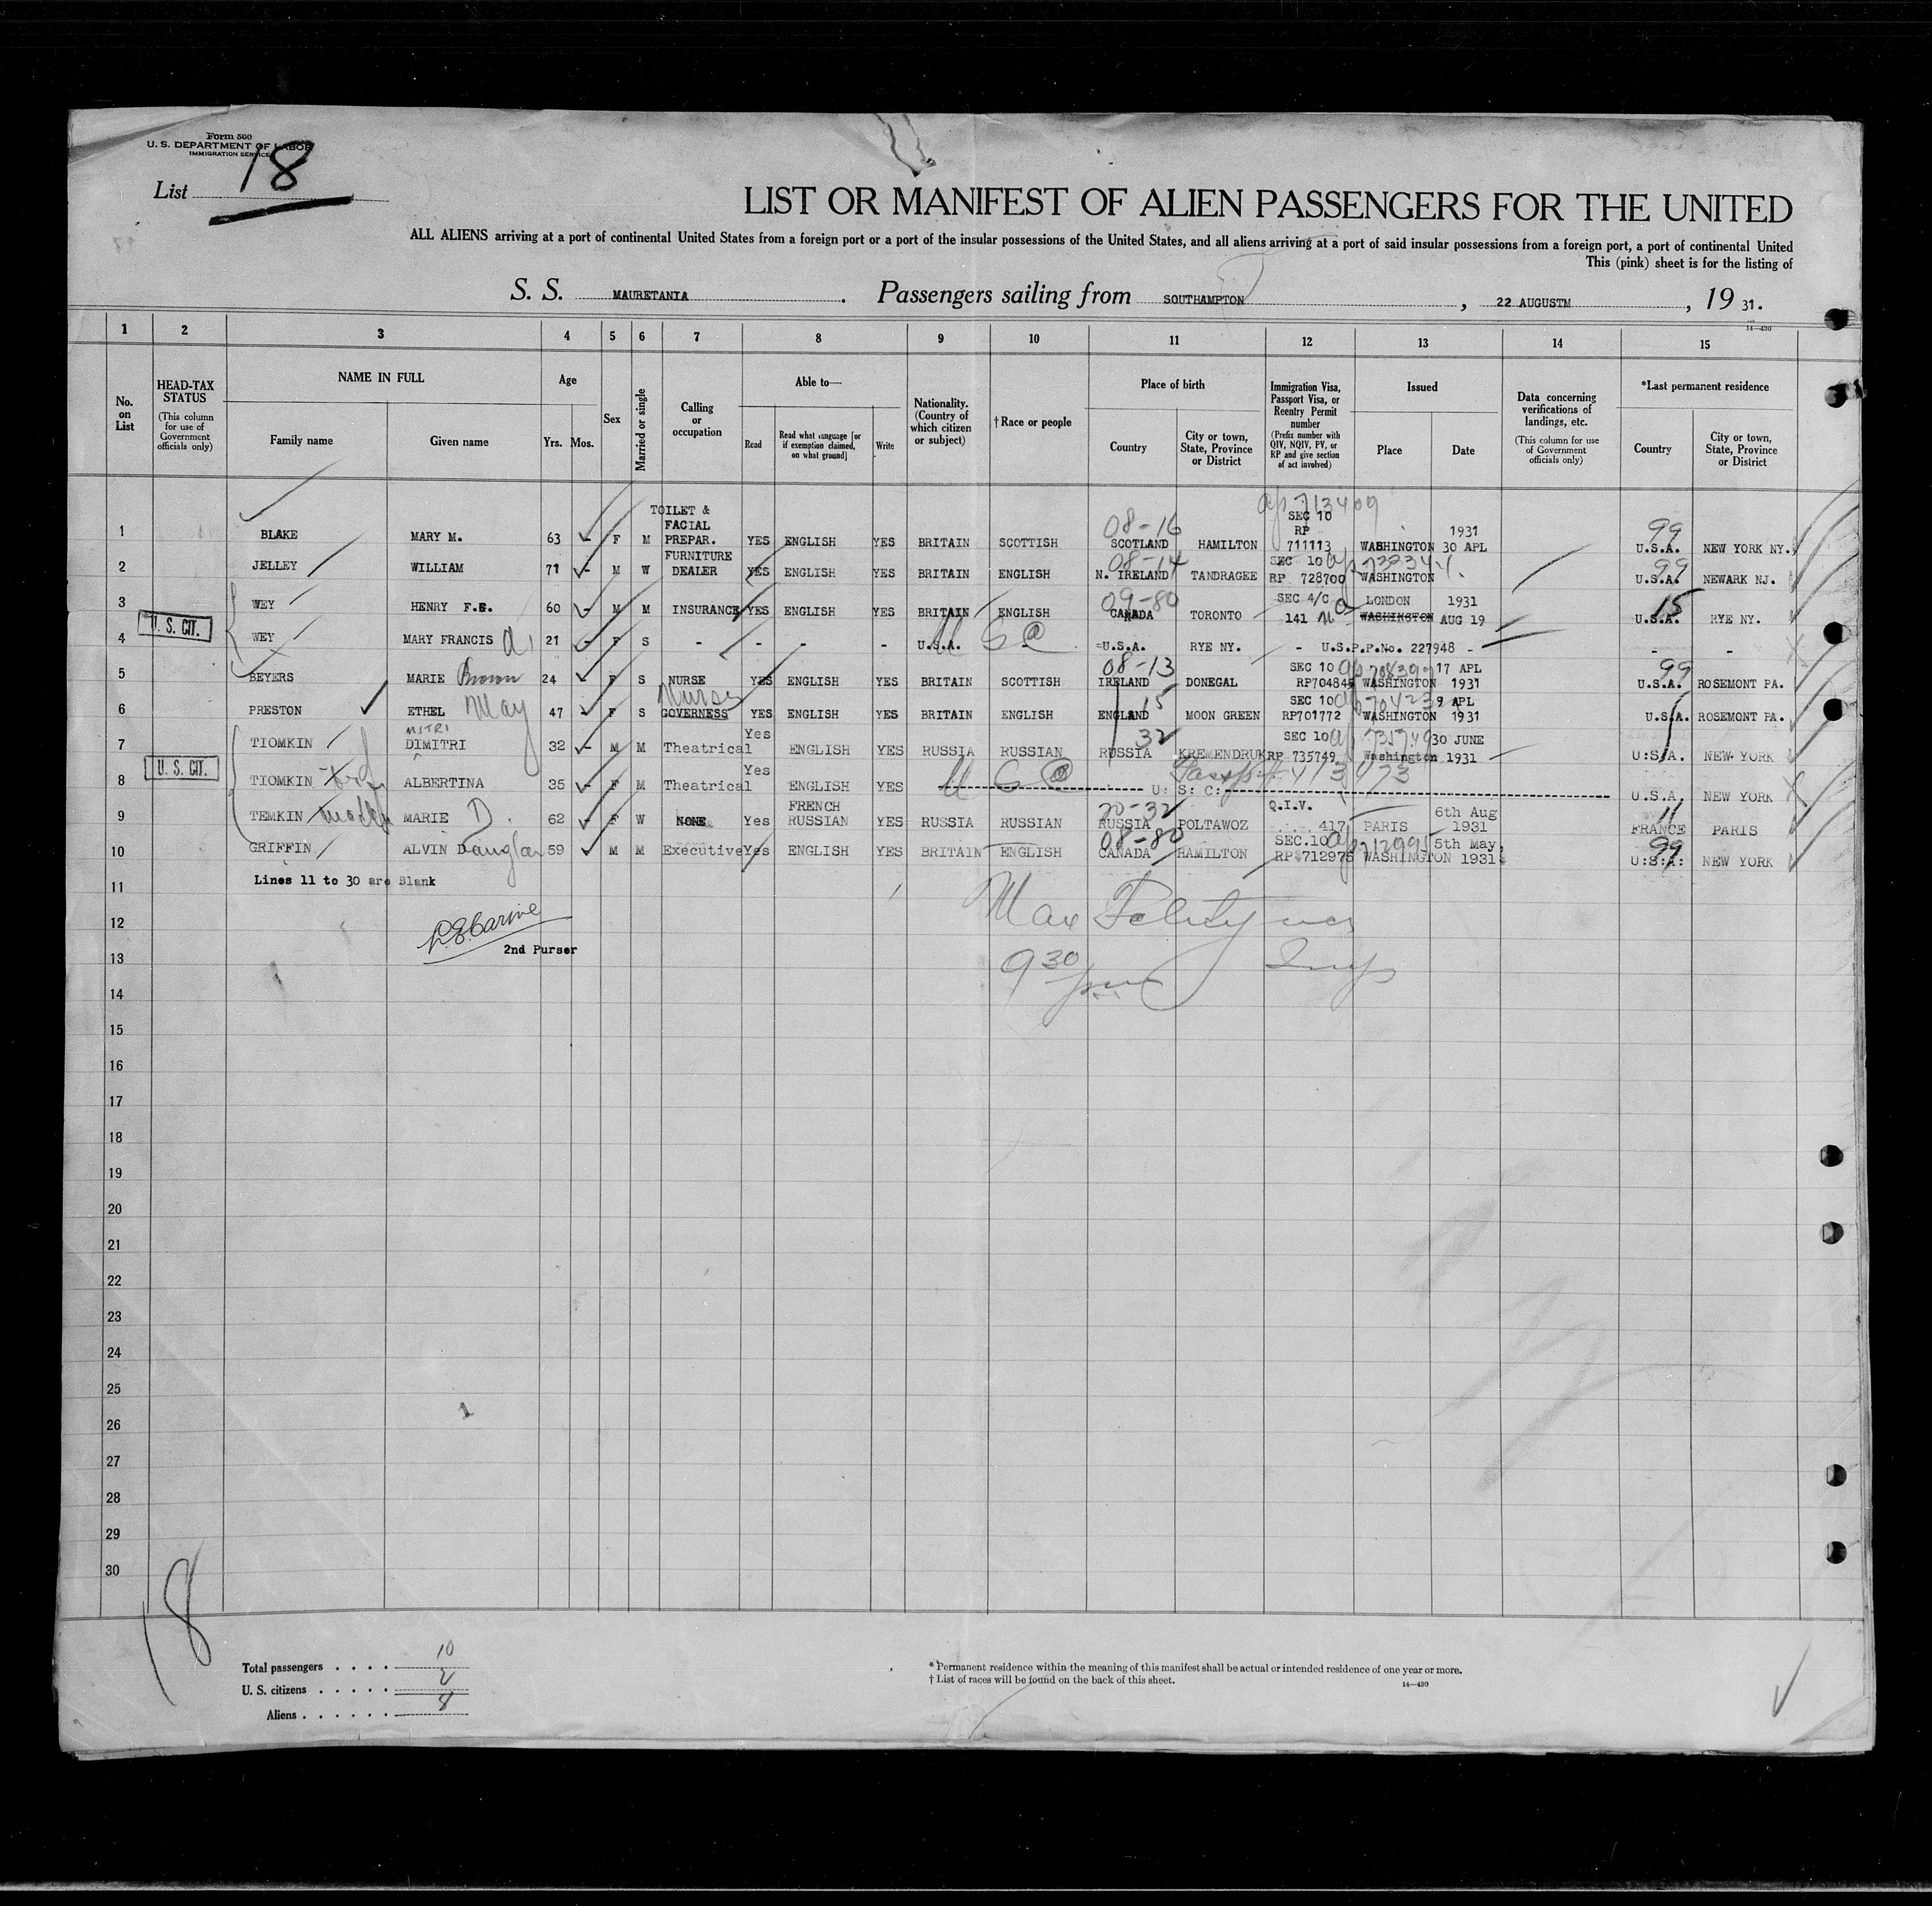 Form 500
U. S. DEPARTMENT OF LABOR
IMMIGRATION SERVICE
List 18
LIST OR MANIFEST OF ALIEN PASSENGERS FOR THE UNITED
ALL ALIENS arriving at a port of continental United States from a foreign port or a port of the insular possessions of the United States, and all aliens arriving at a port of said insular possessions from a foreign port, a port of continental United
This (pink) sheet is for the listing of
S. S. MAURETANIA. Passengers sailing from SOUTHAMPTON, 22 AUGUSTM, 19 31.
14—430
1 2 3 4 5 6 7 8 9 10 11 12 13 14 15
No. on List
HEAD-TAX STATUS (This column for use of Government officials only)
NAME IN FULL
Family name Given name
Age
Yrs. Mos.
Sex
Married or single
Calling or occupation
Able to—
Read Read what language [or if exemption claimed, on what ground] Write
Nationality. (Country of which citizen or subject)
†Race or people
Place of birth
Country City or town, State, Province or District
Immigration Visa, Passport Visa, or Reentry Permit number (Prefix number with QIV, NQIV, PV, or RP and give section of act involved)
Issued
Place Date
Data concerning verifications of landings, etc. (This column for use of Government officials only)
*Last permanent residence
Country City or town, State, Province or District
ap 713409
1 BLAKE MARY M. 63 - F M TOILET & FACIAL PREPAR. YES ENGLISH YES BRITAIN SCOTTISH 08-16 SCOTLAND HAMILTON SEC 10 RP 711113 WASHINGTON 1931 30 APL 99 U.S.A. NEW YORK NY.
2 JELLEY WILLIAM 71 - M W FURNITURE DEALER YES ENGLISH YES BRITAIN ENGLISH 08-14 N. IRELAND TANDRAGEE SEC 10 RP 728700 WASHINGTON 99 U.S.A. NEWARK NJ.
3 WEY HENRY F.S. 60 - M M INSURANCE YES ENGLISH YES BRITAIN ENGLISH 09-80 CANADA TORONTO SEC 4/C 141 LONDON WASHINGTON 1931 AUG 19 15 U.S.A. RYE NY.
U. S. CIT.
4 WEY MARY FRANCIS A. 21 - F S - - - - U.S.A. - U.S.A. RYE NY. - U.S.P.P.No. 227948 - - -
5 BEYERS MARIE Brown 24 - F S NURSE YES ENGLISH YES BRITAIN SCOTTISH 08-13 IRELAND DONEGAL SEC 10 RP704845 WASHINGTON 17 APL 1931 99 U.S.A. ROSEMONT PA.
6 PRESTON ETHEL May 47 - F S Nurse GOVERNESS YES ENGLISH YES BRITAIN ENGLISH 15 ENGLAND MOON GREEN SEC 10 RP701772 WASHINGTON 9 APL 1931 U.S.A. ROSEMONT PA.
7 TIOMKIN MITRI DIMITRI 32 - M M Theatrical Yes ENGLISH YES RUSSIA RUSSIAN 32 RUSSIA KREMENDRUK SEC 10 RP 735749 Washington 30 JUNE 1931 U:S/A. NEW YORK
U. S. CIT.
8 TIOMKIN ALBERTINA 35 - F M Theatrical Yes ENGLISH YES U: S: C: U.S.A. NEW YORK
9 TEMKIN MARIE D. 62 F W NONE Yes FRENCH RUSSIAN YES RUSSIA RUSSIAN 20-32 RUSSIA POLTAWOZ Q.I.V. 417 PARIS 6th Aug 1931 11 FRANCE PARIS
10 GRIFFIN ALVIN Douglas 59 M M Executive Yes ENGLISH YES BRITAIN ENGLISH 08-80 CANADA HAMILTON SEC.10 RP 712975 WASHINGTON 5th May, 1931 99 U:S:A: NEW YORK
11 Lines 11 to 30 are Blank
12
2nd Purser
13 9 30 pm Insp
14
15
16
17
18
19
20
21
22
23
24
25
26
27
28
29
30
18
Total passengers . . . . 10
U. S. citizens . . . . . 2
Aliens . . . . . . 8
* Permanent residence within the meaning of this manifest shall be actual or intended residence of one year or more.
† List of races will be found on the back of this sheet.
14—430